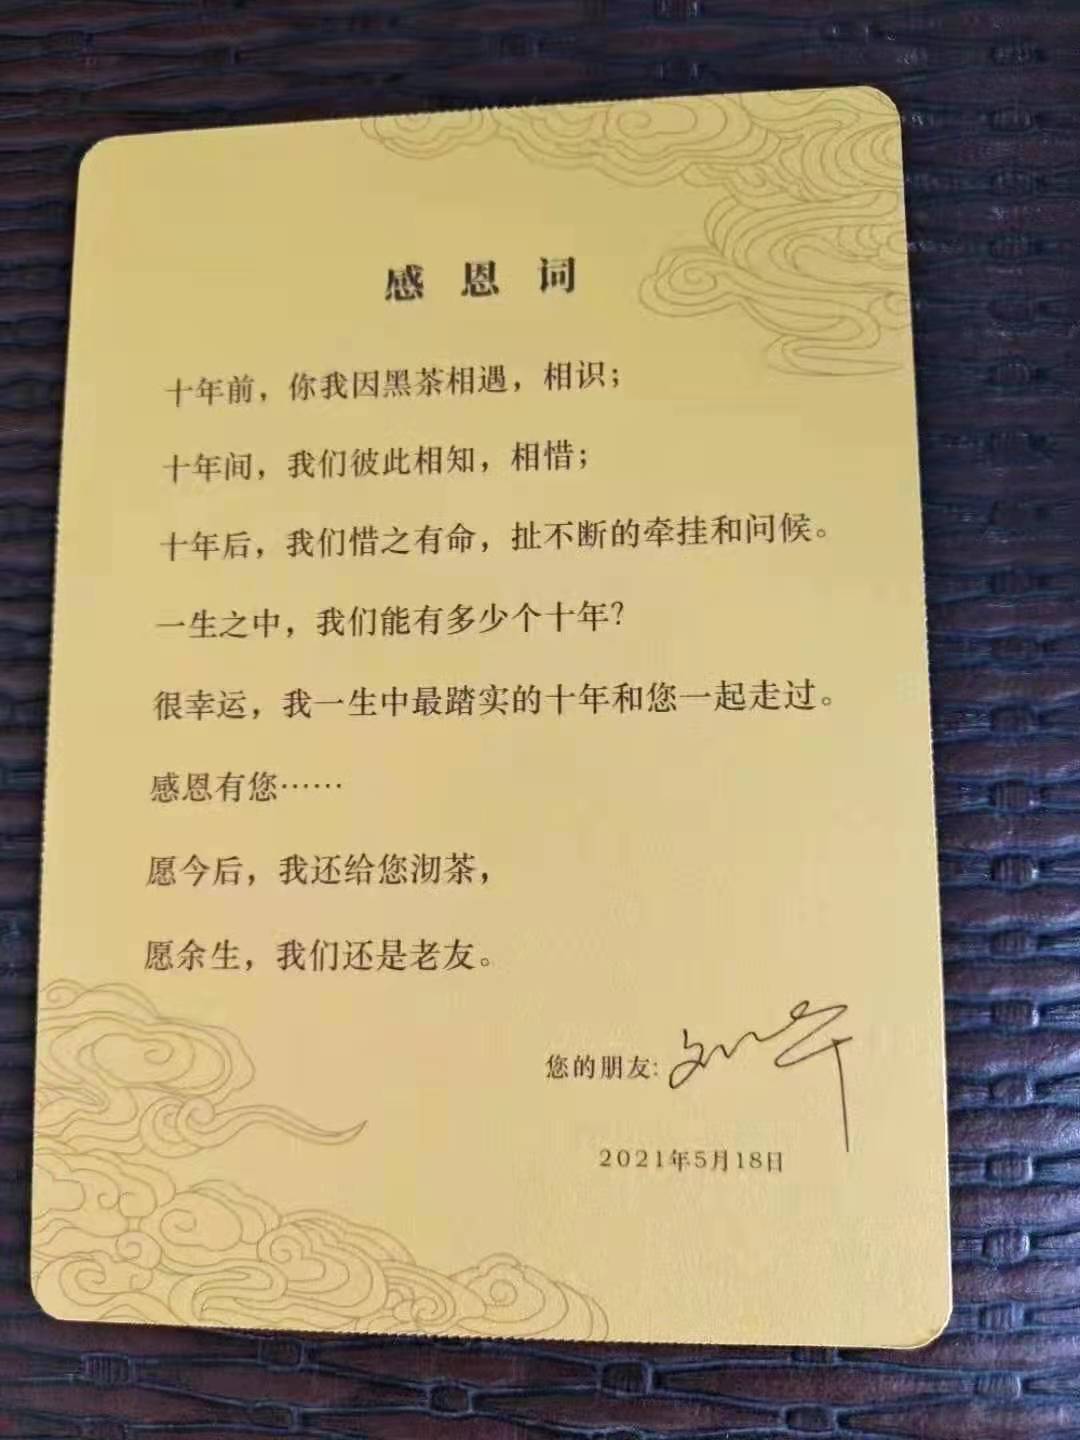 感恩词
十年前，你我因黑茶相遇，相识；
十年间，我们彼此相知，相惜；
十年后，我们惜之有命，扯不断的牵挂和问候。
一生之中，我们能有多少个十年？
很幸运，我一生中最踏实的十年和您一起走过。
感恩有您……
愿今后，我还给您沏茶，
愿余生，我们还是老友。
您的朋友:
2021年5月18日